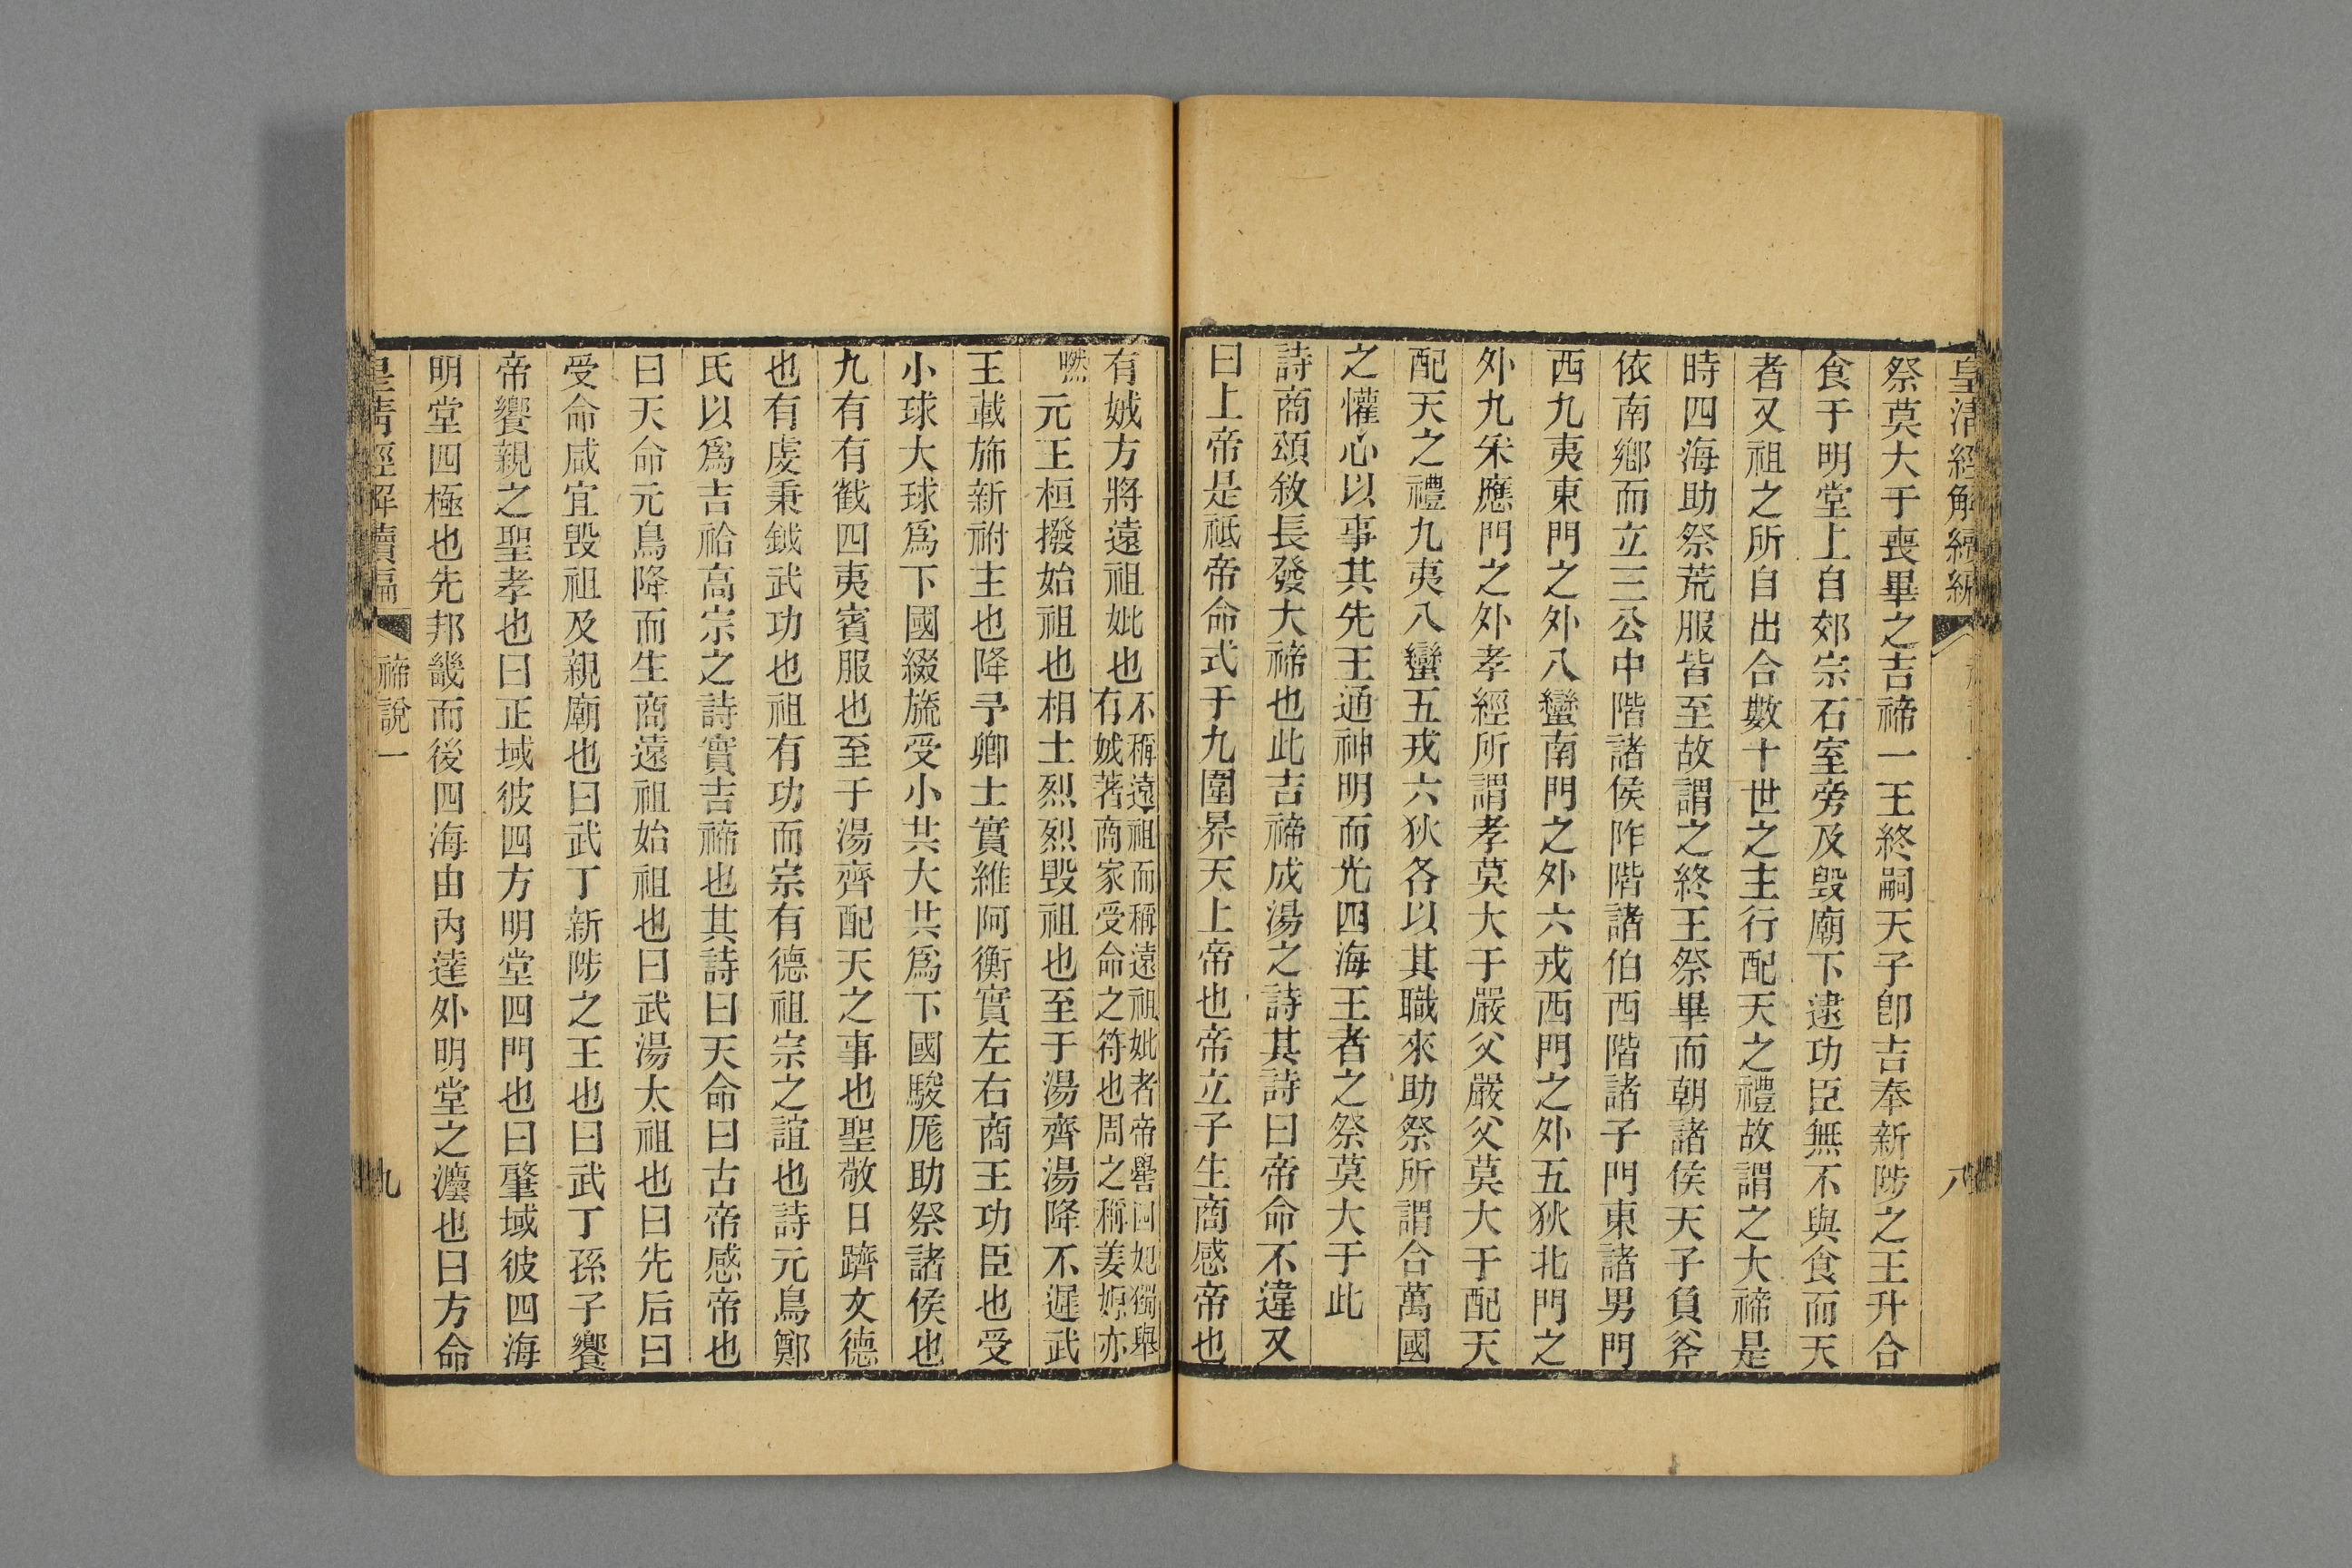 皇清經解續編
八
祭莫大于喪畢之吉禘一王終嗣天子卽吉奉新陟之王升合
食于明堂上自郊宗石室旁及毀廟下逮功臣無不與食而天
者又祖之所自出合數十世之主行配天之禮故謂之大禘是
時四海助祭荒服皆至故謂之終王祭畢而朝諸侯天子負斧
依南鄉而立三公中階諸侯阼階諸伯西階諸子門東諸男門
西九夷東門之外八蠻南門之外六戎西門之外五狄北門之
外九采應門之外孝經所謂孝莫大于嚴父嚴父莫大于配天
配天之禮九夷八蠻五戎六狄各以其職來助祭所謂合萬國
之懽心以事其先王通神明而光四海王者之祭莫大于此
詩商頌敘長發大禘也此吉禘成湯之詩其詩曰帝命不違又
曰上帝是祗帝命式于九圍昇天上帝也帝立子生商感帝也
有娀方將遠祖妣也不稱遠祖而稱遠祖妣者帝嚳四妃獨舉
有娀著商家受命之符也周之稱姜嫄亦
㬗元王桓撥始祖也相土烈烈毀祖也至于湯齊湯降不遲武
王載斾新祔主也降予卿士實維阿衡實左右商王功臣也受
小球大球爲下國綴旒受小共大共爲下國駿厖助祭諸侯也
九有有截四夷賓服也至于湯齊配天之事也聖敬日躋文德
也有虔秉鉞武功也祖有功而宗有德祖宗之誼也詩元鳥鄭
氏以爲吉祫高宗之詩實吉禘也其詩曰天命曰古帝感帝也
曰天命元鳥降而生商遠祖始祖也曰武湯太祖也曰先后曰
受命咸宜毀祖及親廟也曰武丁新陟之王也曰武丁孫子饗
帝饗親之聖孝也曰正域彼四方明堂四門也曰肇域彼四海
明堂四極也先邦畿而後四海由內達外明堂之灋也曰方命
皇清經解續編
禘說一
九